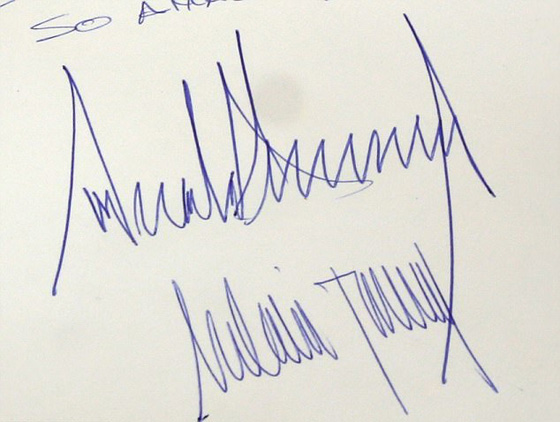 SO AMA
Donald Trump
Melania Trump